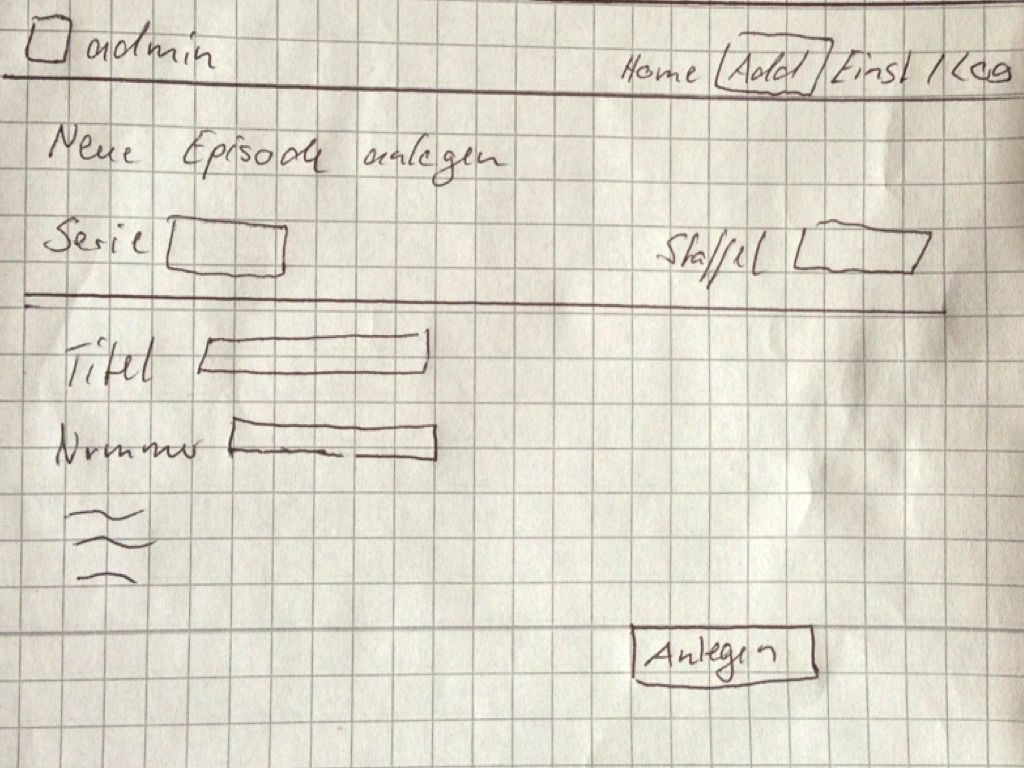 admin Home Add Einst / Log
Neue Episode anlegen
Serie Staffel
Titel
Nummer
Anlegen